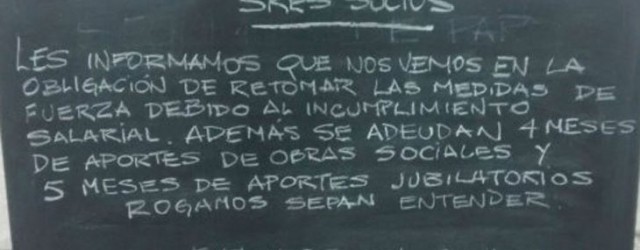 SRES SOCIOS
LES INFORMAMOS QUE NOS VEMOS EN LA
OBLIGACIÓN DE RETOMAR LAS MEDIDAS DE
FUERZA DEBIDO AL INCUMPLIMIENTO
SALARIAL. ADEMÁS SE ADEUDAN 4 MESES
DE APORTES DE OBRAS SOCIALES Y
5 MESES DE APORTES JUBILATORIOS
ROGAMOS SEPAN ENTENDER.